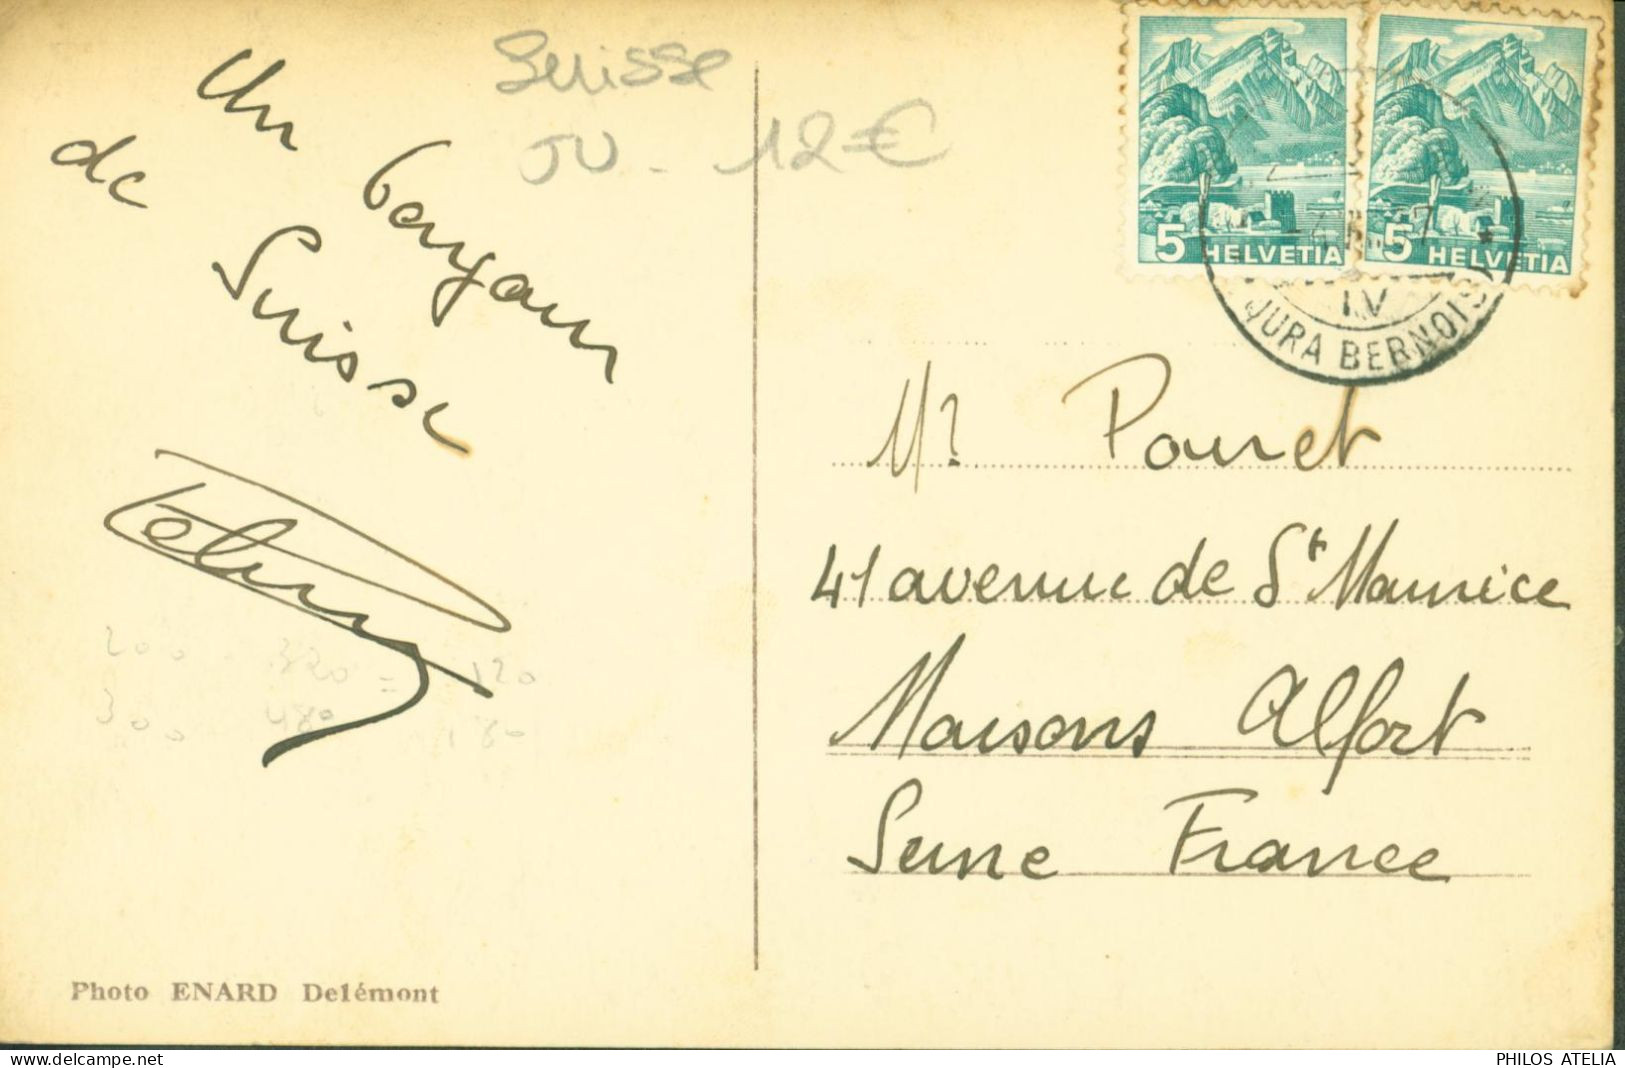 Suisse
JU - 12€
Un bonjour
de Suisse
200 320 = 120
300 480 180
5 HELVETIA
5 HELVETIA
IV
JURA BERNOIS
Mr Pouret
41 avenue de St Maurice
Maisons Alfort
Seine France
Photo ENARD Delémont
PHILOS ATELIA